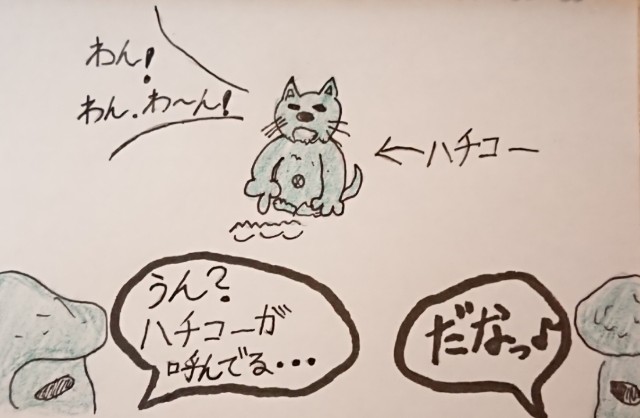 わん!
わん.わ〜ん!
←ハチコー
うん?
ハチコーが
呼んでる・・・
だなっ♪